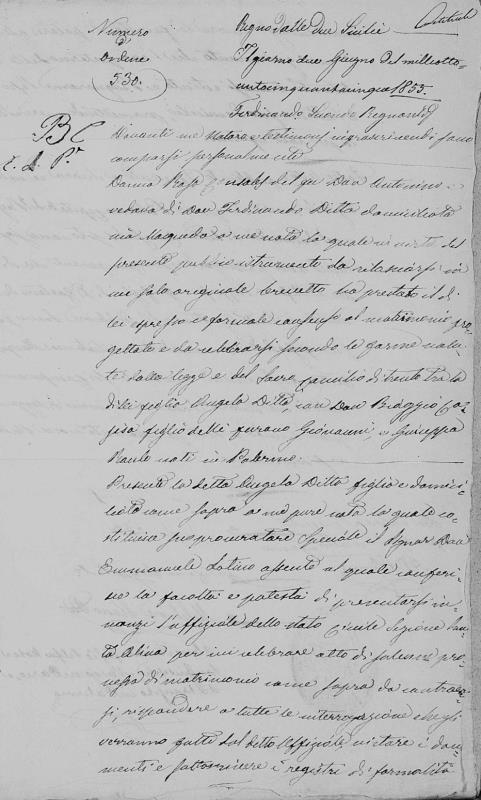 Numero
d'
ordine
530.
Regno delle due Sicilie
Il giorno due Giugno del milleotto-
cinquantacinque 1855.
Ferdinando Secondo Regnante
Innanti me Notaro e testimonj infrascrivendi sono
comparsi personalmente
Donna Rosa del qu Don Antonino
vedova di Don Ferdinando Ditta domiciliata
via Maqueda a me nota la quale in virtù del
presente pubblico istrumento da rilasciarsi in
un solo originale brevetto ha prestato il di
lei espresso e formale consenso al matrimonio pro-
gettato e da celebrarsi secondo le forme volu-
te dalla legge e del Sacro Concilio di trento tra la
di lei figlia Angela Ditta, con Don Biaggio
figlio delli furono Giovanni, e Giuseppa
nati in Palermo.
Presente la detta Angela Ditta figlia e domici-
liata come sopra a me pure nota la quale co-
stituisce suo procuratore Speciale il Signor Don
Emmanuele Latino assente al quale conferi-
sce la facoltà e potestà di presentarsi in-
nanzi l'uffiziale dello stato Civile Sezione
per ivi celebrare atto di solenne pro-
messa di matrimonio come sopra da contraer-
si, rispondere a tutte le interrogazione che gli
verranno fatte dal detto Uffiziale i docu-
menti e sottoscrivere i registri di formalità